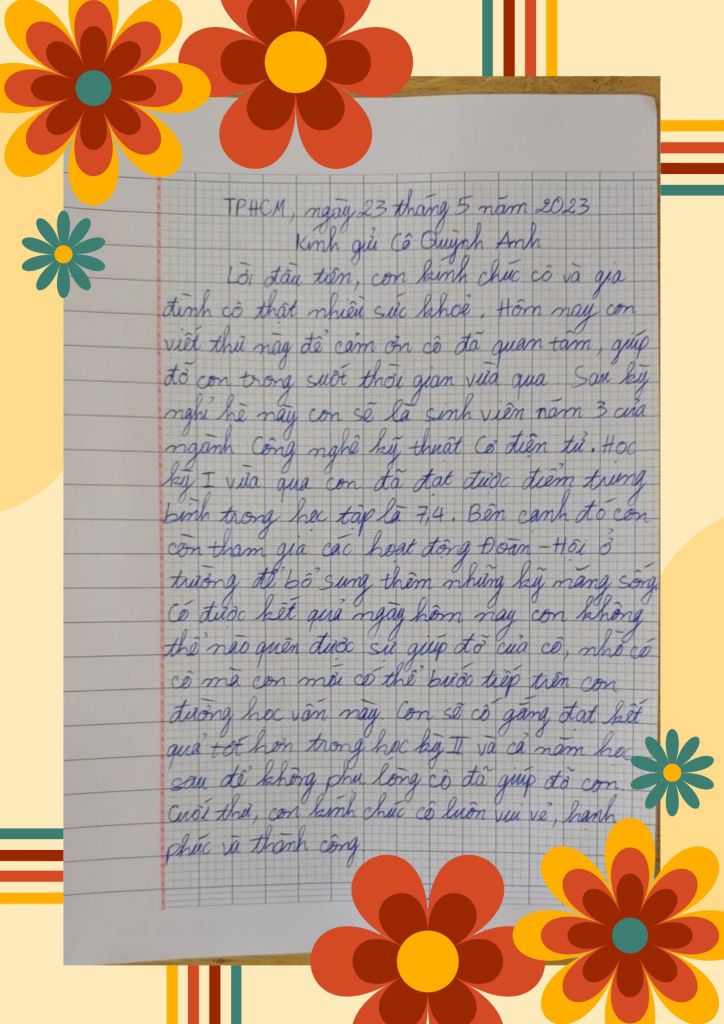 TPHCM, ngày 23 tháng 5 năm 2023
Kính gửi Cô Quỳnh Anh
Lời đầu tiên, con kính chúc cô và gia
đình cô thật nhiều sức khoẻ. Hôm nay con
viết thư này để cảm ơn cô đã quan tâm, giúp
đỡ con trong suốt thời gian vừa qua. Sau kỳ
nghỉ hè này con sẽ là sinh viên năm 3 của
ngành Công nghệ kỹ thuật Cơ điện tử. Học
kỳ I vừa qua con đã đạt được điểm trung
bình trong học tập là 7,4. Bên cạnh đó con
còn tham gia các hoạt động Đoàn - Hội ở
trường để bổ sung thêm những kỹ năng sống.
Có được kết quả ngày hôm nay con không
thể nào quên được sự giúp đỡ của cô, nhờ có
cô mà con mới có thể bước tiếp trên con
đường học vấn này. Con sẽ cố gắng đạt kết
quả tốt hơn trong học kỳ II và cả năm học
sau để không phụ lòng cô đã giúp đỡ con.
Cuối thư, con kính chúc cô luôn vui vẻ, hạnh
phúc và thành công.